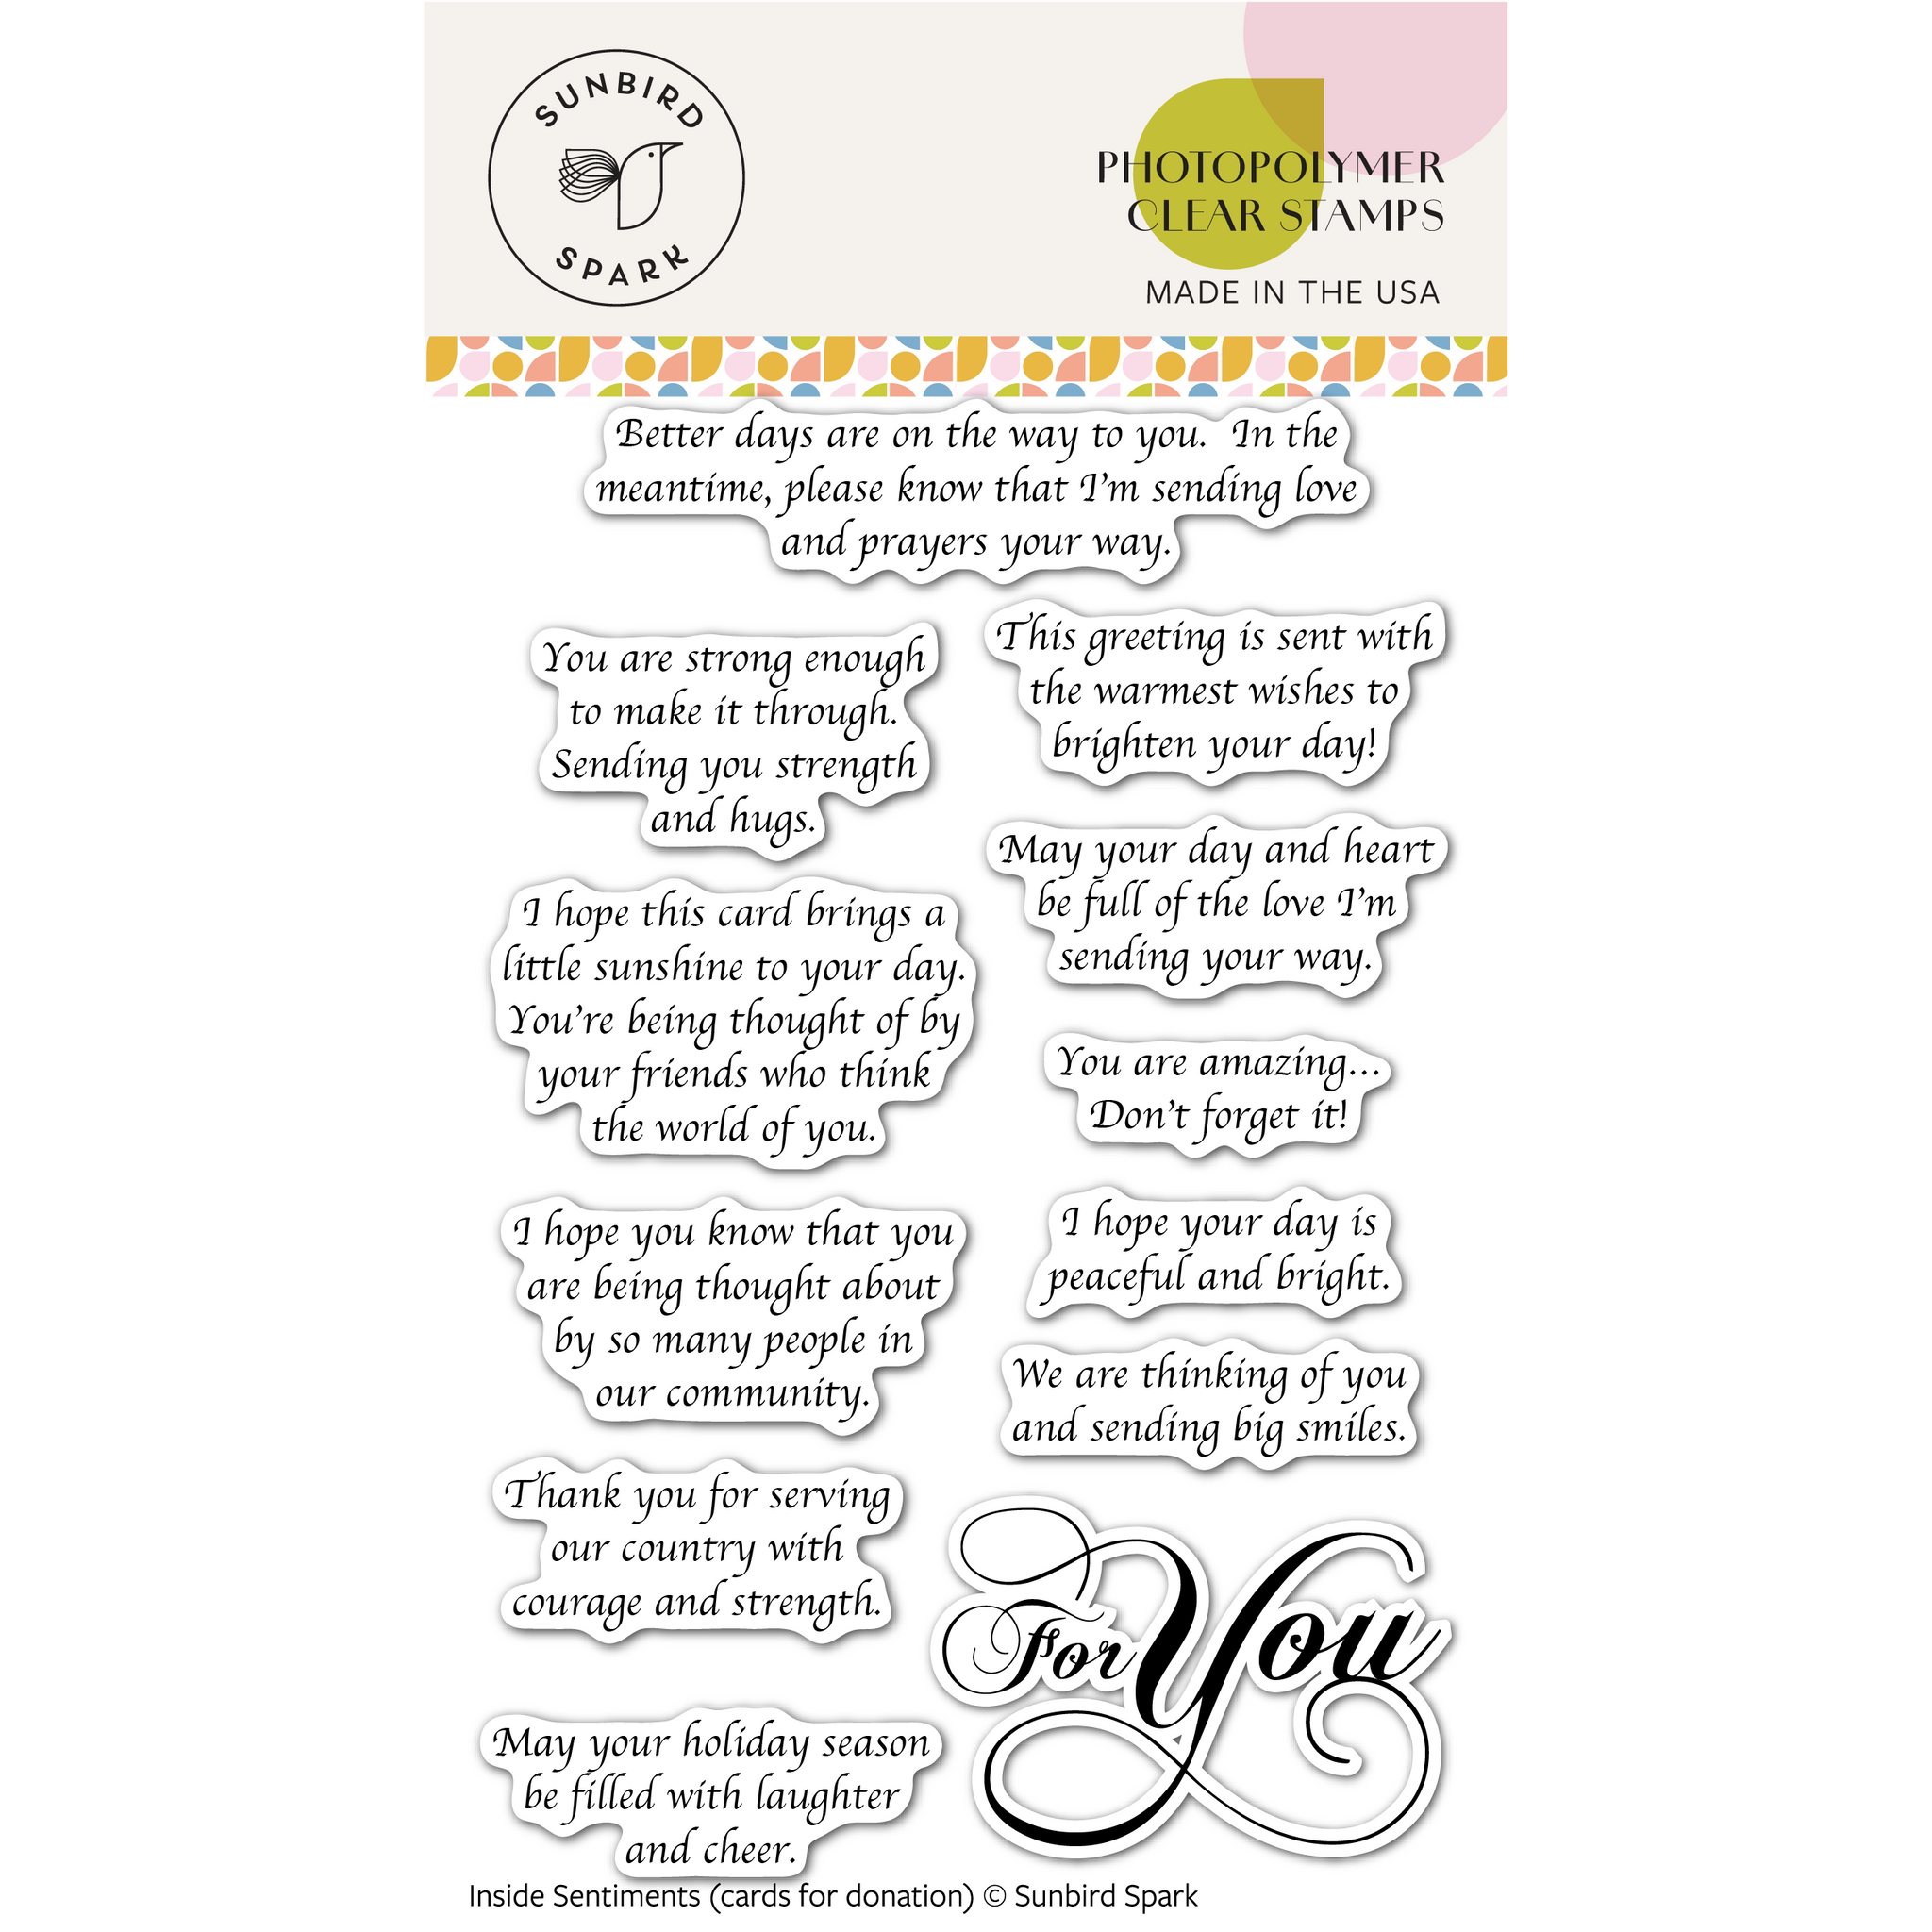 SUNBIRD
SPARK
PHOTOPOLYMER
CLEAR STAMPS
MADE IN THE USA
Better days are on the way to you. In the
meantime, please know that I'm sending love
and prayers your way.
You are strong enough
to make it through.
Sending you strength
and hugs.
This greeting is sent with
the warmest wishes to
brighten your day!
I hope this card brings a
little sunshine to your day.
You're being thought of by
your friends who think
the world of you.
May your day and heart
be full of the love I'm
sending your way.
You are amazing...
Don't forget it!
I hope you know that you
are being thought about
by so many people in
our community.
I hope your day is
peaceful and bright.
We are thinking of you
and sending big smiles.
Thank you for serving
our country with
courage and strength.
For You
May your holiday season
be filled with laughter
and cheer.
Inside Sentiments (cards for donation) © Sunbird Spark